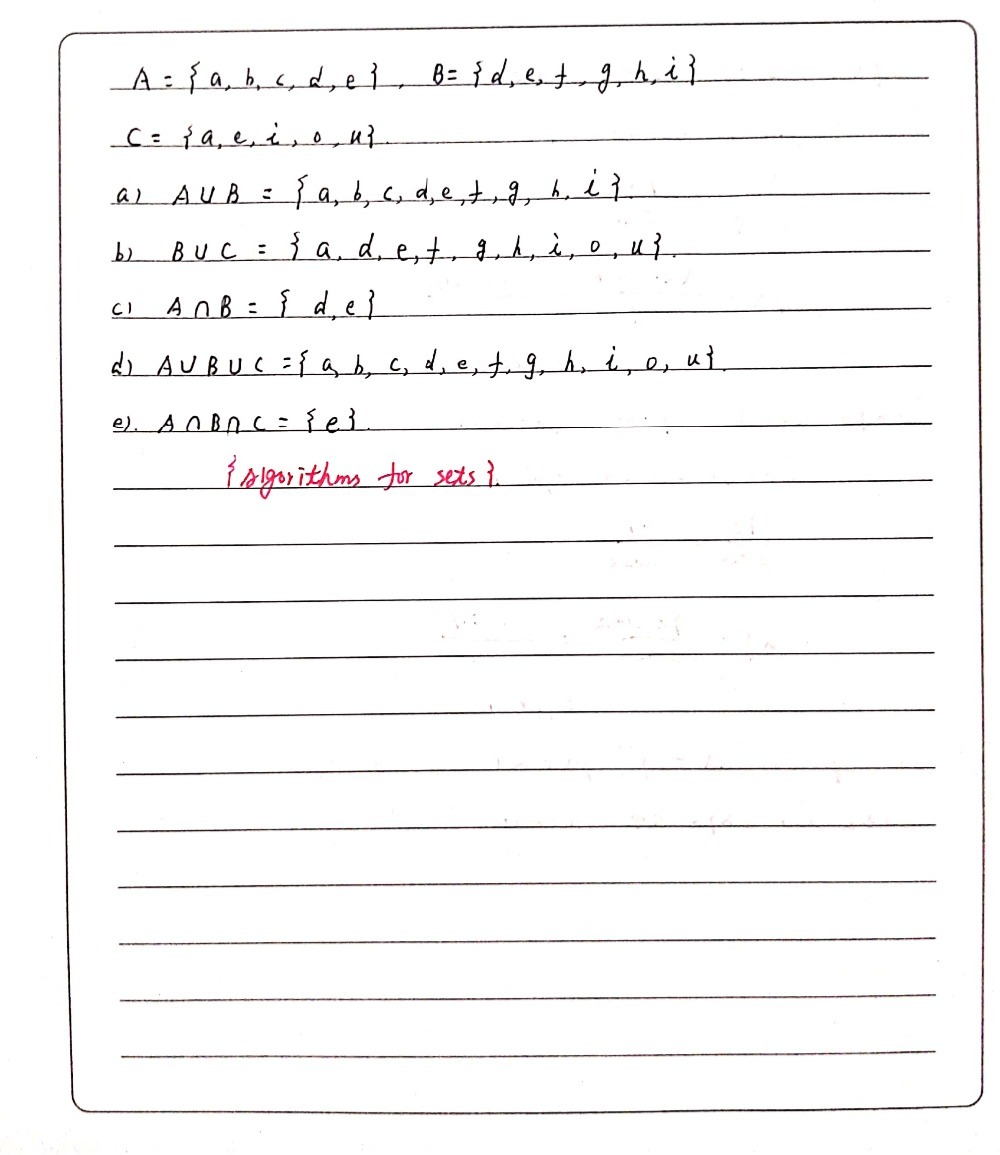 A = {a, b, c, d, e}, B= {d, e, f, g, h, i}
C = {a, e, i, o, u}.
a) A∪B = {a, b, c, d, e, f, g, h, i}.
b) B∪C = {a, d, e, f, g, h, i, o, u}.
c) A∩B = {d, e}
d) A∪B∪C = {a, b, c, d, e, f, g, h, i, o, u}.
e). A∩B∩C = {e}.
{Algorithms for sets}.